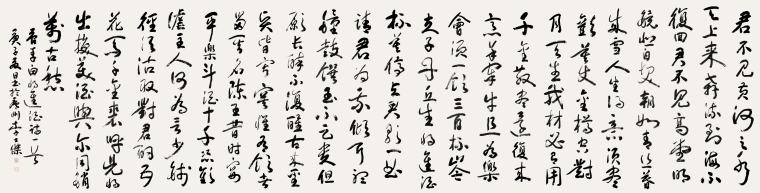 君不見黃河之水
天上來奔流到海不
復回君不見高堂明
鏡悲白髮朝如青絲暮
成雪人生得意須盡
歡莫使金樽空對
月天生我材必有用
千金散盡還復來
烹羊宰牛且為樂
會須一飲三百杯岑
夫子丹丘生將進酒
杯莫停與君歌一曲
請君為我傾耳聽
鐘鼓饌玉不足貴但
願長醉不復醒古來聖
賢皆寂寞惟有飲者
留其名陳王昔時宴
平樂斗酒十千恣歡
謔主人何為言少錢
徑須沽取對君酌五
花馬千金裘呼兒將
出換美酒與爾同銷
萬古愁
李白將進酒一首
庚子夏日於州李傑